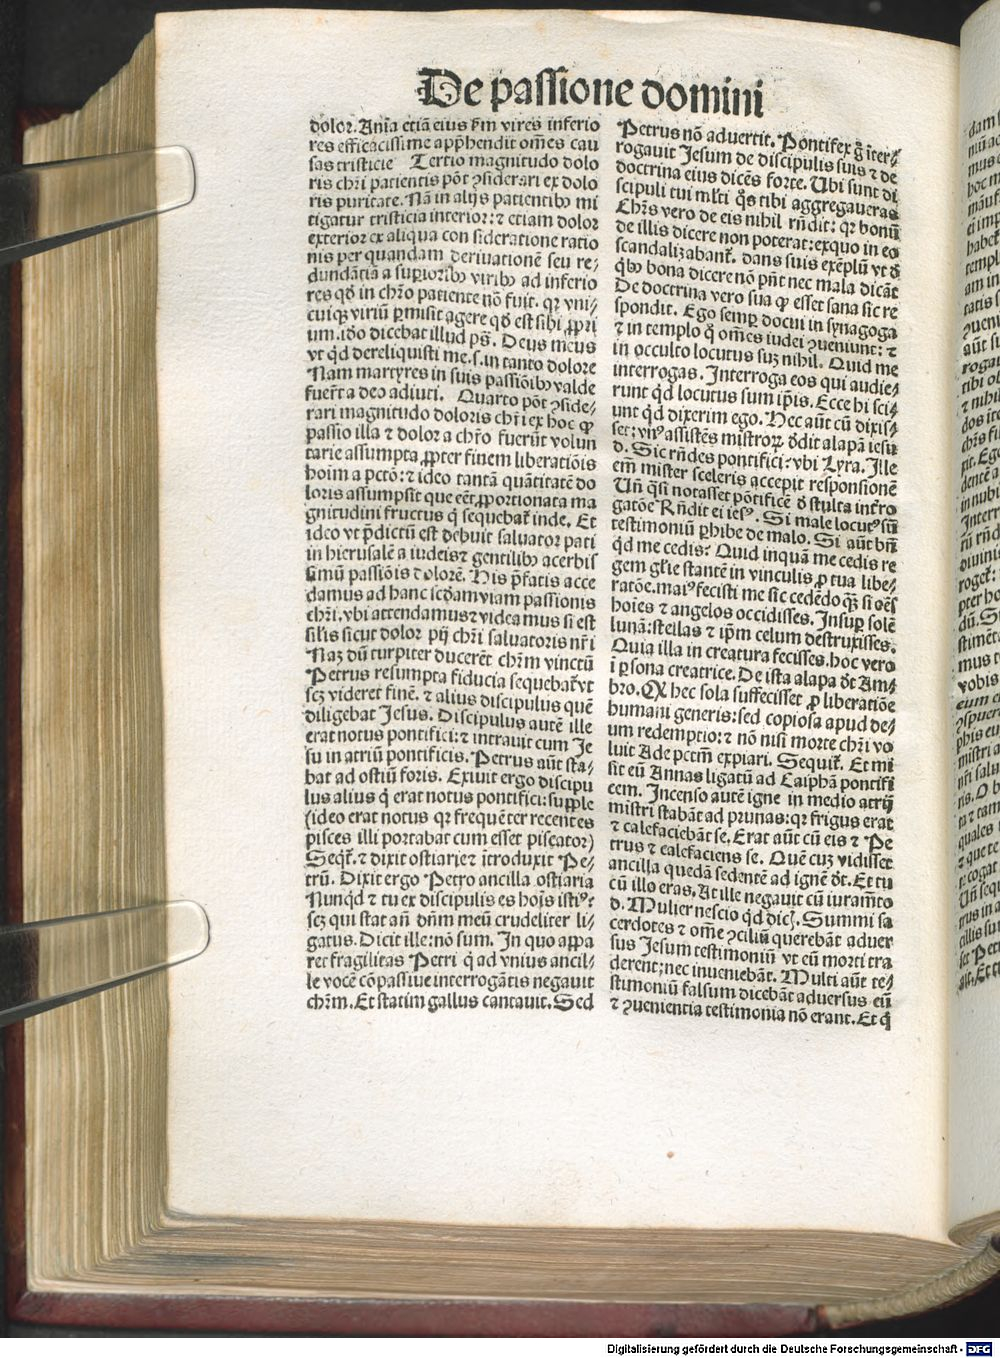 De passione domini
dolor. Aĩa etiã eius ẜm vires inferio
res efficacissime app̃hendit om̃es cau
sas tristicie Tertio magnitudo dolo
ris chr̃i patientis põt ꝯsiderari ex dolo
ris puritate. Nã in alijs patientibꝰ mi
tigatur tristicia interior: ⁊ etiam dolor
exterior ex aliqua con sideratione ratio
nis per quandam deriuationẽ seu re⸗
dundãtiã a suꝑioribꝰ viribꝰ ad inferio
res qđ in chr̃o patiente nõ fuit. qꝛ vni⸗
cuiqꝫ viriũ ꝑmisit agere qđ est sibi ꝓpri
um. iđo dicebat illud pš. Deus meus
vt qd dereliquisti me .s. in tanto dolore
Nam martyres in suis passiõibꝰ valde
fuer̃t a deo adiuti. Quarto põt ꝯside⸗
rari magnitudo doloris chr̃i ex hoc ꝙ
passio illa ⁊ dolor a chr̃o fuer̃ũt volun
tarie assumpta ꝓpter finem liberatiõis
hoim a pctõ: ⁊ ideo tantã quãtitatẽ do
loris assumpsit que eẽt ꝓportionata ma
gnitudini fructus q̃ sequebat̃ inde. Et
ideo vt p̃dictũ est debuit saluator pati
in hierusalẽ a iudeis ⁊ gentilibꝰ acerbis
simũ passiõis dolorẽ. His p̃fatis acce
damus ad hanc scđam viam passionis
chr̃i. vbi attendamus ⁊ videamus si est
sil̃is sicut dolor pij chr̃i saluatoris nr̃i
Naꝫ dũ turpiter ducerẽt chr̃m vinctũ
Petrus resumpta fiducia sequebat̃ vt
scꝫ videret finẽ. ⁊ alius discipulus quẽ
diligebat Jesus. Discipulus autẽ ille
erat notus pontifici: ⁊ intrauit cum Je
su in atriũ pontificis. Petrus aũt sta⸗
bat ad ostiũ foris. Exiuit ergo discipu
lus alius q̃ erat notus pontifici: supple
(ideo erat notus qꝛ frequẽter recentes
pisces illi portabat cum esset piscator)
Seqt̃. ⁊ dixit ostiarie ⁊ ĩtroduxit Pe⸗
trũ. Dixit ergo Petro ancilla ostiaria
Nunqd ⁊ tu ex discipulis es hoĩs istiꝰ:
scꝫ qui stat añ dñm meũ crudeliter li⸗
gatus. Dicit ille: nõ sum. In quo appa
ret fragilitas Petri q̃ ad vnius ancil⸗
le vocẽ cõpassiue interrogãtis negauit
chr̃m. Et statim gallus cantauit. Sed
Petrus nõ aduertit. Pontifex g̊ ĩter⸗
rogauit Jesum de discipulis suis ⁊ de
doctrina eius dicẽs forte. Ubi sunt di
scipuli tui ml̃ti q̊s tibi aggregaueras
Chr̃s vero de eis nihil rñdit: qꝛ bonũ
de illis dicere non poterat: exquo in eo
scandalizabant̃. dans suis exẽplũ vt đ
q̃bꝰ bona dicere nõ pñt nec mala dicãt
De doctrina vero sua ꝙ esset sana sic re
spondit. Ego semꝑ docui in synagoga
⁊ in templo q̊ om̃es iudei ꝯueniunt: ⁊
in occulto locutus suꝫ nihil. Quid me
interrogas. Interroga eos qui audie⸗
runt qd locutus sum ip̃is. Ecce hi sci⸗
unt qd dixerim ego. Hec aũt cũ dixis⸗
set: vnꝰ assistẽs mĩstroꝝ đdit alapã iesu
đ. Sic rñdes pontifici: vbi Lyra. Ille
em̃ mister sceleris accepit responsionẽ
Uñ q̃si notasset põtificẽ đ stulta intr̃o
gatõe Rñdit ei iesꝰ. Si male locutꝰ sũ
testimoniũ ꝑhibe de malo. Si aũt bñ
qd me cedis: Quid inquã me cedis re
gem gl̃ie stantẽ in vinculis ꝓ tua libe⸗
ratõe. maiꝰ fecisti me sic cedẽdo qꝫ̃ si oẽs
hoĩes ⁊ angelos occidisses. Insuꝑ solẽ
lunã: stellas ⁊ ip̃m celum destruxisses.
Quia illa in creatura fecisses. hoc vero
ĩ ꝑsona creatrice. De ista alapa đt Am⸗
bro. Qꝫ hec sola suffecisset ꝓ liberatiõe
humani generis: sed copiosa apud de⸗
um redemptio: ⁊ nõ nisi morte chr̃i vo
luit Ade pctm̃ expiari. Sequit̃. Et mi
sit eũ Annas ligatũ ad Caiphã pontifi
cem. Incenso autẽ igne in medio atrij
mĩstri stabãt ad prunas: qꝛ frigus erat
⁊ calefaciebãt se. Erat aũt cũ eis ⁊ Pe
trus ⁊ calefaciens se. Quẽ cuꝫ vidisset
ancilla quedã sedentẽ ad ignẽ đt. Et tu
cũ illo eras. At ille negauit cũ iuramẽto
đ. Mulier nescio qd dicꝭ. Summi sa
cerdotes ⁊ om̃e ꝯciliũ querebãt aduer
sus Jesum testimoniũ vt eũ morti tra
derent; nec inueniebãt. Multi aũt te⸗
stimoniũ falsum dicebãt aduersus eũ
⁊ ꝯuenientia testimonia nõ erant. Et q̃
Digitalisierung gefördert durch die Deutsche Forschungsgemeinschaft - DFG